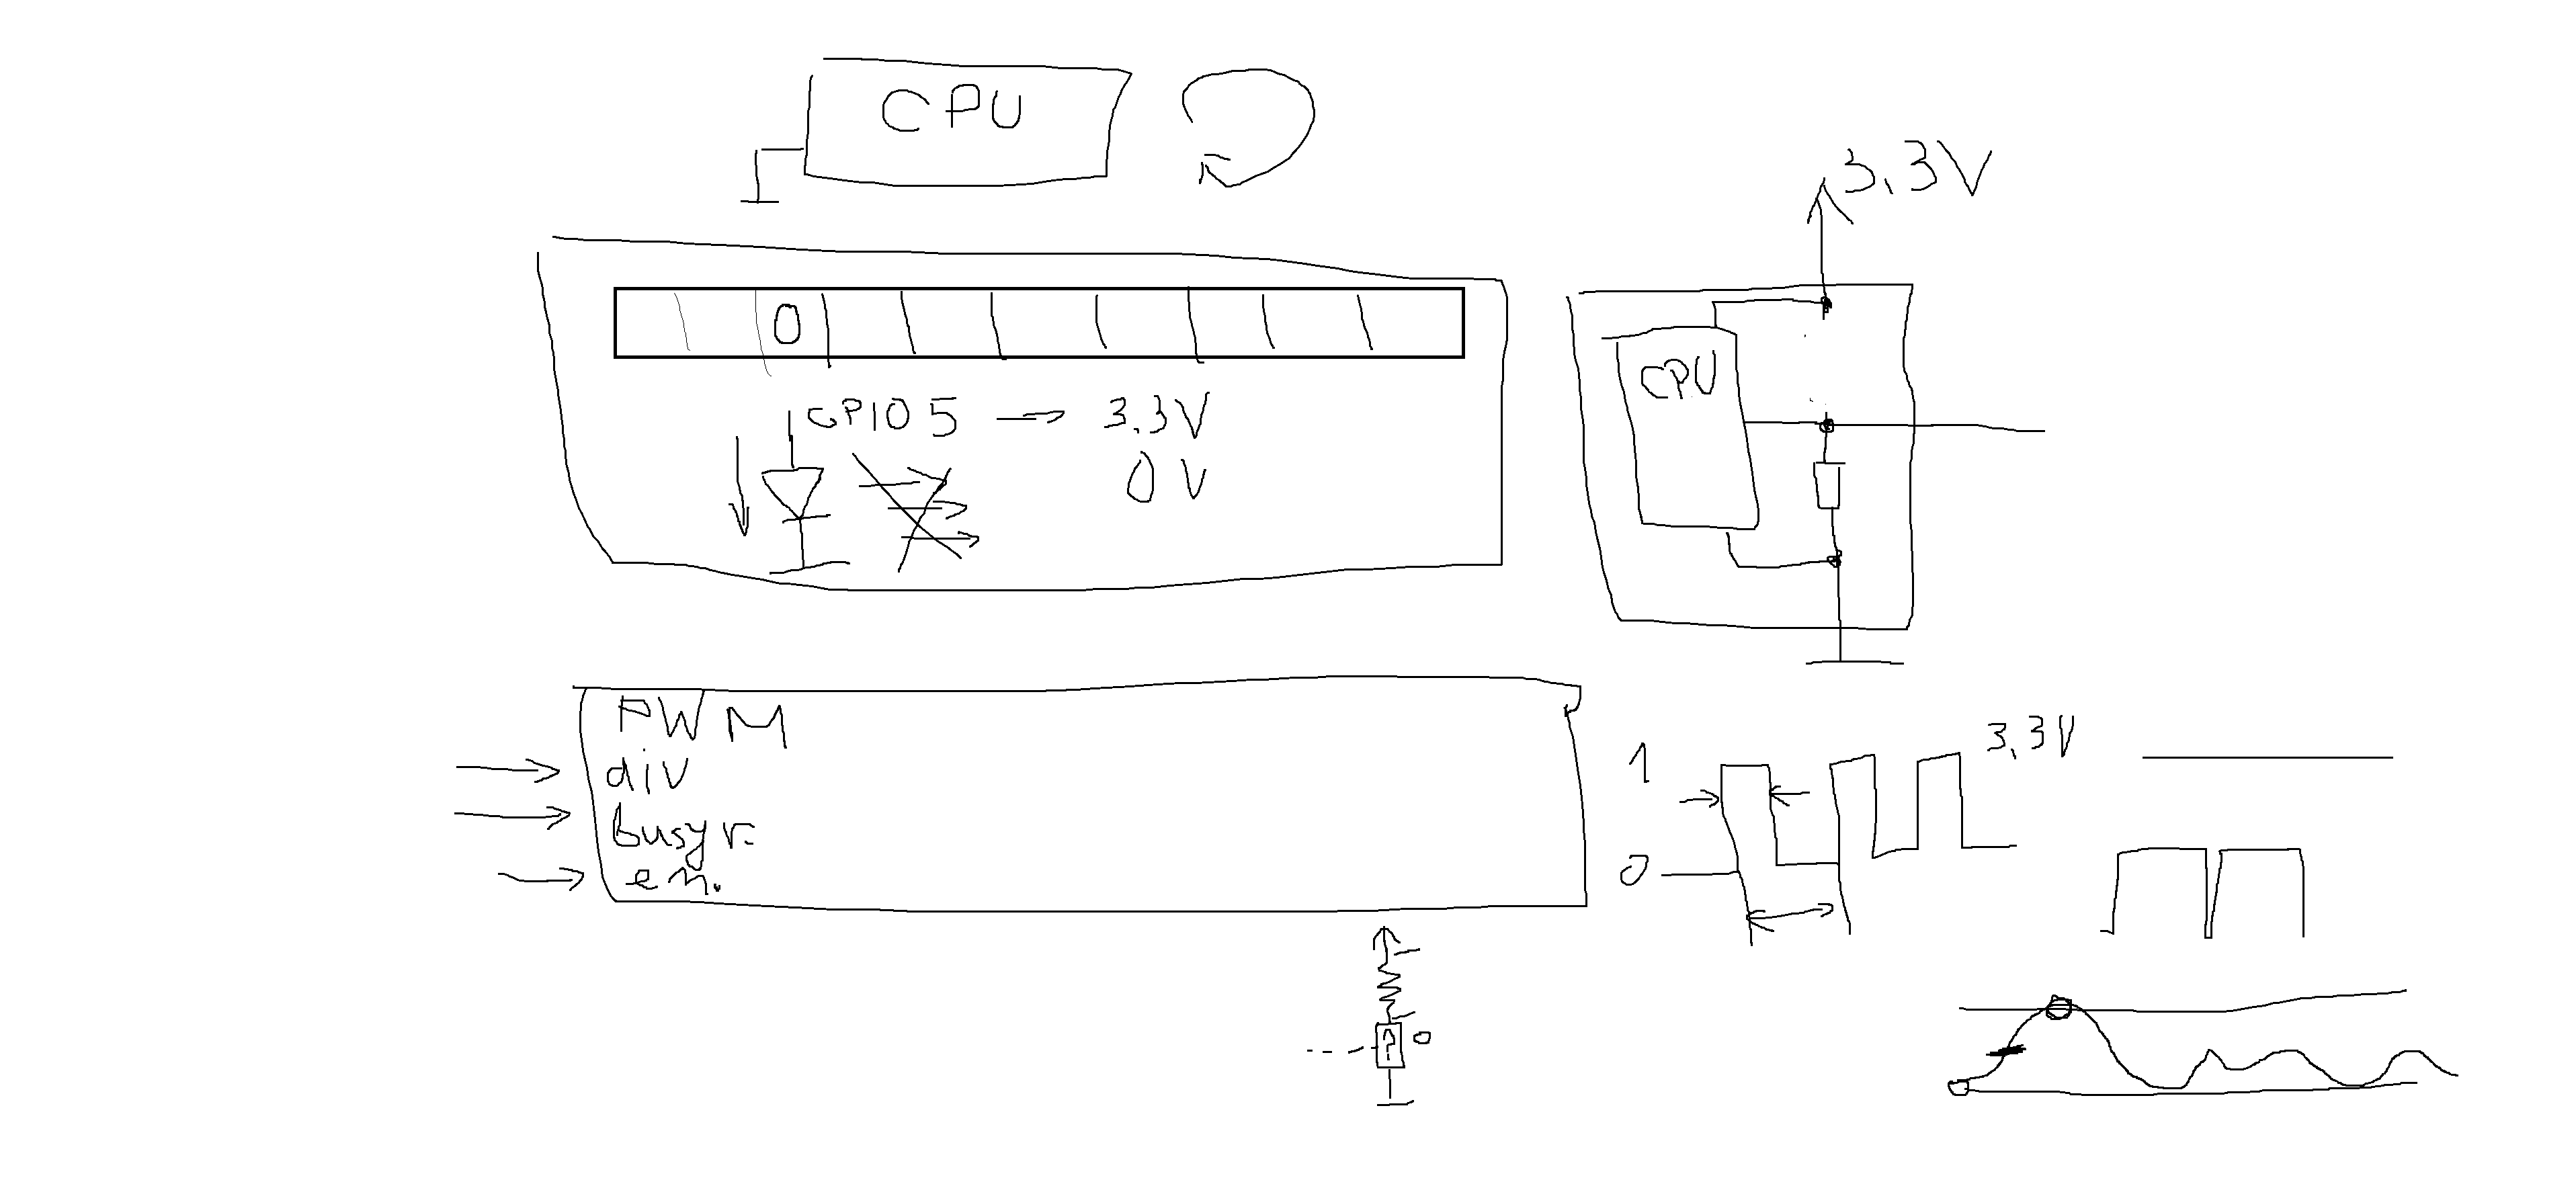 CPU
3.3V
0
CPU
GPIO 5 → 3.3V
0V
PWM
div
busy r.
en.
1
0
3.3V
?
0